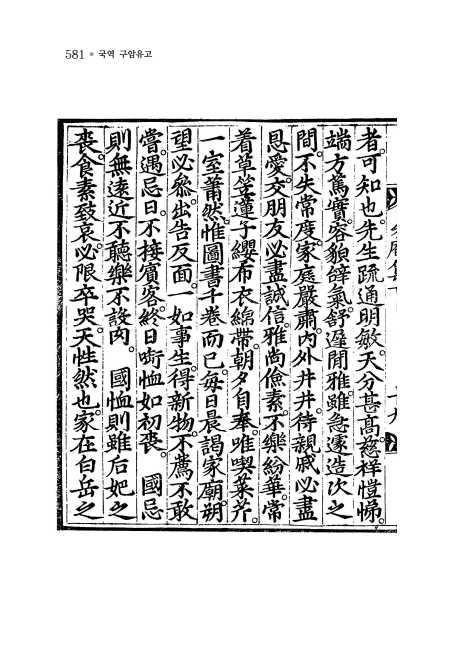 581 ● 국역 구암유고
者可知也。先生疏通明敏。天分甚高。慈祥愷悌。
端方篤實。容貌傀氣舒遲閒雅。雖急遽造次之
間。不失常度。家庭嚴肅。內外井井。待親戚必盡
恩愛。交朋友必盡誠信。雅尚儉素。不樂紛華。常
着草笠蓮子纓布衣綿帶。朝夕自奉。唯喫菜芹。
一室蕭然。惟圖書千卷而已。每日晨謁家廟。朔
望必參。出告反面。一如事生。得新物。不薦不敢
嘗。遇忌日。不接賓客。終日哀恤如初喪。 國忌
則無遠近不聽樂不設肉。 國恤則雖后妃之
喪。食素致哀。必限卒哭。天性然也。家在白岳之